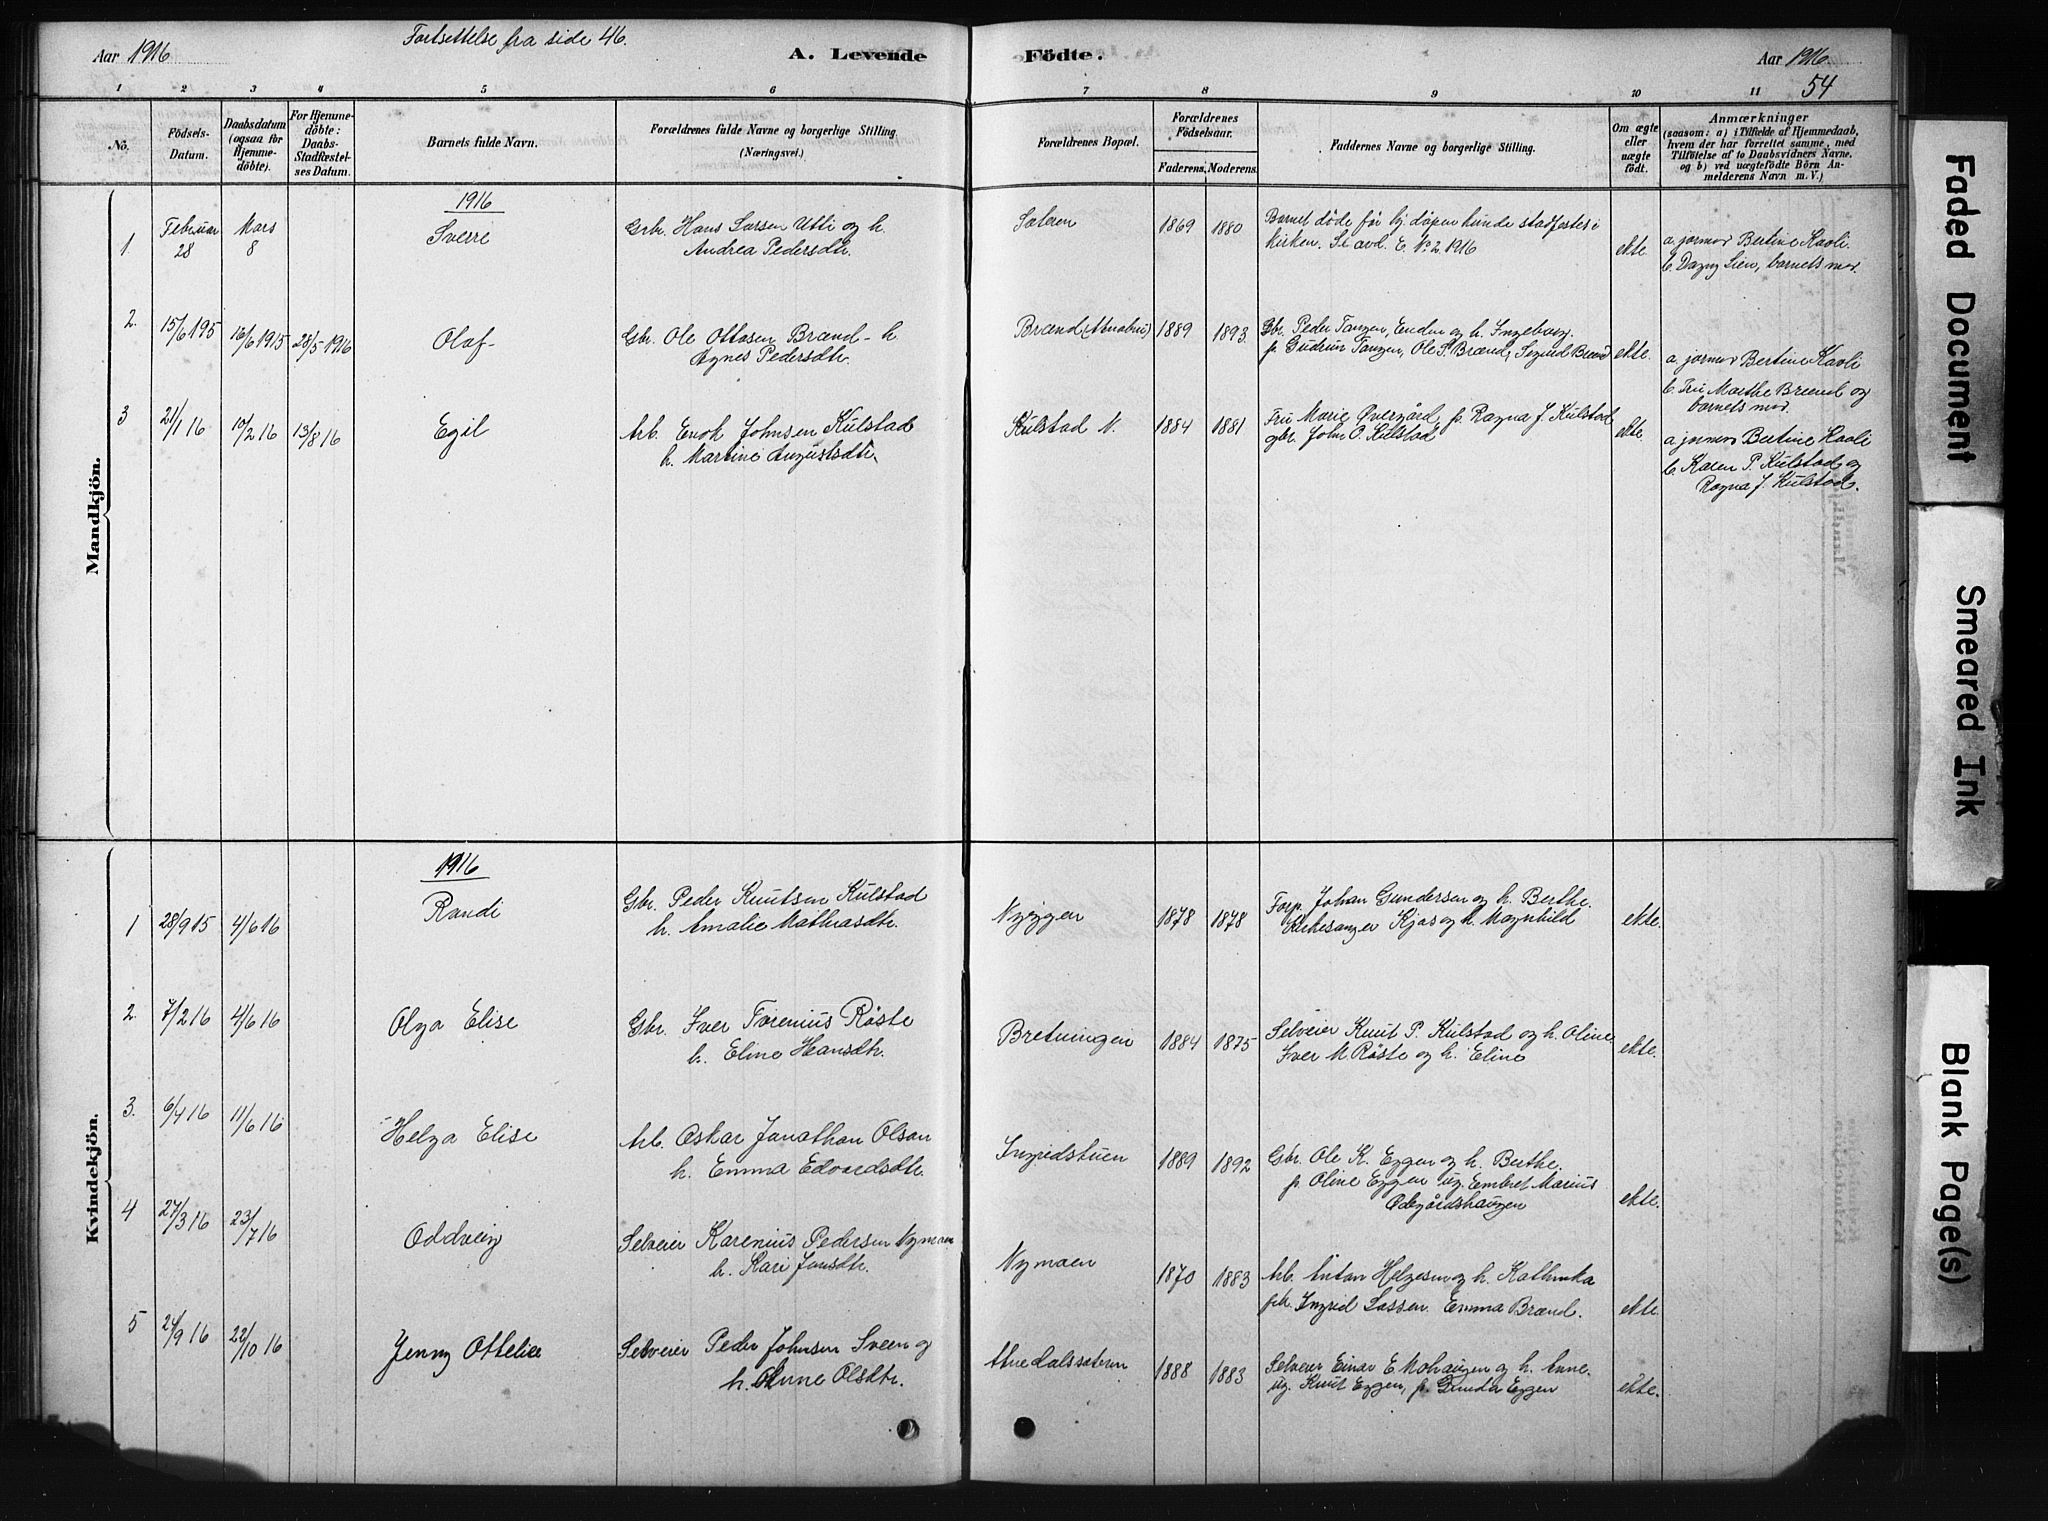 Aar 1916
Fortsettelse fra side 46.
A. Levende
Födte.
Aar 1916
54
1 2 3 4 5 6 7 8 9 10 11
No.
Födsels-
Datum.
Daabsdatum
(ogsaa for
Hjemme-
döbte).
For Hjemme-
döbte:
Daabs-
Stadfæstel-
ses Datum.
Barnets fulde Navn.
Forældrenes fulde Navne og borgerlige Stilling.
(Næringsvei.)
Forældrenes Bopæl.
Forældrenes
Födselsaar.
Faderens. Moderens.
Faddernes Navne og borgerlige Stilling.
Om ægte
eller
uægte
födt.
Anmærkninger
(saasom: a) i Tilfælde af Hjemmedaab,
hvem der har forrettet samme, med
Tilföielse af to Daabsvidners Navne,
og b) ved uægtefödte Börn An-
melderens Navn m. V.)
Mandkjön.
1916
1.
Februar
28
Mars
8
Sverre
Grb. Hans Larsen Utti og h.
Andrea Pedersdtr.
Sæteren
1869 1880
Barnet døde før hj.døpen kunde stadfestes i
kirken. Se avd. E. No. 2 1916
ekte.
a. jormor Bertine Kaoli.
b. Dagny Lien, barnets mor.
2.
15/6 195
16/6 1915
28/5 1916
Olaf
Gbr. Ole Ottosen Brænd - h.
Agnes Pedersdtr.
Brænd
1889 1893
Gbr. Peder Tangen, Enden og h. Ingeborg.
p. Gudrun Tangen, Ole P. Brænd, Sigurd Brænd
ekte.
a. jormor Bertine Kaoli
b. Fru Marthe Brænd og
barnets mor.
3
21/1 16
10/2 16
13/8 16
Egil
Arb. Enok Johnsen Kulstad
h. Martine Augustsdtr.
Kulstad N.
1884 1881
Fru Marie Øvergård, p. Ragna J. Kulstad
gbr. John O. Kulstad
ekte.
a. jormor Bertine Kaoli
b. Karen P. Kulstad og
Ragna J. Kulstad.
Kvindekjön.
1916
1
28/9 15
4/6 16
Randi
Gbr. Peder Knutsen Kulstad
h. Amalie Mathiasdtr.
Nyiggen
1878 1878
Forp. Johan Gundersen og h. Berthe.
Kirkesanger Kjos og h. Magnhild
ekte.
2.
7/2 16
4/6 16
Olga Elise
Gbr. Iver Torenius Røste
h. Eline Hansdtr.
Bretningen
1884 1875
Selveier Knut P. Kulstad og h. Oline.
Iver M. Røste og h. Eline
ekte.
3.
6/4 16
11/6 16
Helga Elise
Arb. Oskar Jonathan Olson
h. Emma Edvardsdtr.
Ingridstuen
1889 1892
Gbr. Ole K. Eggen og h. Berthe.
p. Oline Eggen ug. Embret Marius
Ødegårdshaugen
ekte.
4
27/3 16
23/7 16
Oddveig
Selveier Karenius Pedersen Nymoen
h. Kari Jonsdtr.
Nymoen
1870 1883
Arb. Anton Helgesen og h. Kathinka
pik. Ingrid Lassen. Emma Brænd.
ekte.
5
24/9 16
22/10 16
Jenny Ottelie
Selveier Peder Johnsen Sveen og
h. Anne Olsdtr.
Atnedalssæteren
1888 1883
Selveier Einar E. Mohaugen og h. Anne.
ug. Knut Eggen, p. Gunda Eggen
ekte.
Faded Document
Smeared Ink
Blank Page(s)